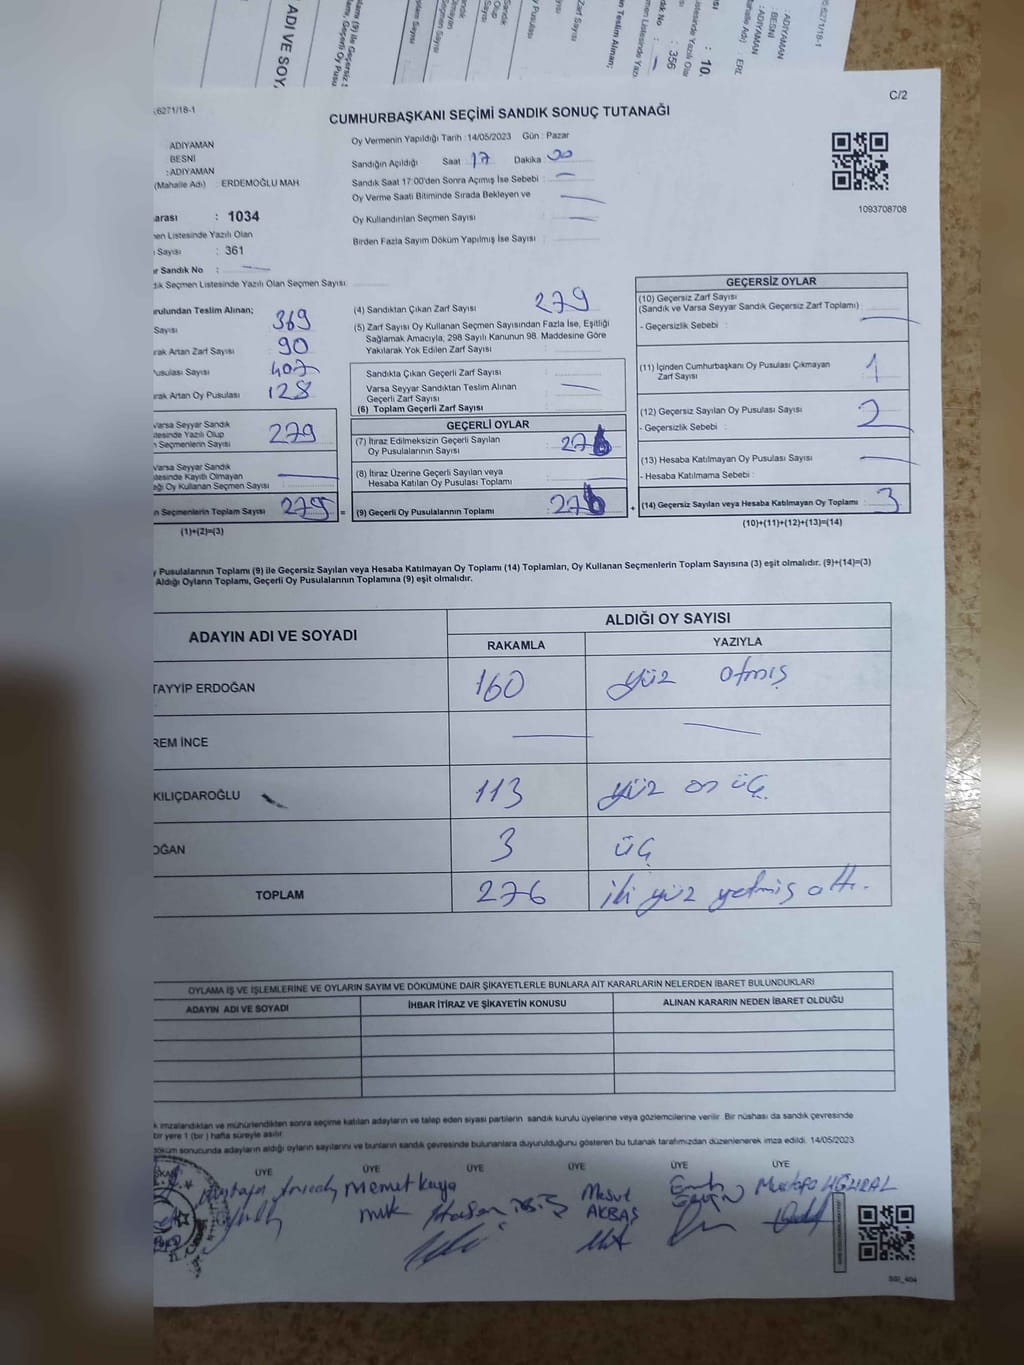 ADI VE SOY
: 356
: 10.
: ADIYAMAN
: BESNİ
: ADIYAMAN
6271/18-1
C/2
6271/18-1
CUMHURBAŞKANI SEÇİMİ SANDIK SONUÇ TUTANAĞI
ADIYAMAN
BESNİ
:ADIYAMAN
(Mahalle Adı) : ERDEMOĞLU MAH
Oy Vermenin Yapıldığı Tarih : 14/05/2023 Gün : Pazar
Sandığın Açıldığı Saat 17 Dakika 00
Sandık Saat 17:00'den Sonra Açılmış İse Sebebi : —
Oy Verme Saati Bitiminde Sırada Bekleyen ve
Oy Kullandırılan Seçmen Sayısı : —
Birden Fazla Sayım Döküm Yapılmış İse Sayısı :
1093708708
arası : 1034
en Listesinde Yazılı Olan
Sayısı : 361
r Sandık No : —
dık Seçmen Listesinde Yazılı Olan Seçmen Sayısı
urulundan Teslim Alınan;
Sayısı 369
rak Artan Zarf Sayısı 90
Pusulası Sayısı 407
rak Artan Oy Pusulası 128
Varsa Seyyar Sandık
tesinde Yazılı Olup
n Seçmenlerin Sayısı 279
Varsa Seyyar Sandık
tesinde Kayıtlı Olmayan
eği Oy Kullanan Seçmen Sayısı : —
n Seçmenlerin Toplam Sayısı 279 =
(1)+(2)=(3)
(4) Sandıktan Çıkan Zarf Sayısı 279
(5) Zarf Sayısı Oy Kullanan Seçmen Sayısından Fazla İse, Eşitliği
Sağlamak Amacıyla, 298 Sayılı Kanunun 98. Maddesine Göre
Yakılarak Yok Edilen Zarf Sayısı :
Sandıkta Çıkan Geçerli Zarf Sayısı :
Varsa Seyyar Sandıktan Teslim Alınan
Geçerli Zarf Sayısı : —
(6) Toplam Geçerli Zarf Sayısı
GEÇERLİ OYLAR
(7) İtiraz Edilmeksizin Geçerli Sayılan
Oy Pusulalarının Sayısı : 276
(8) İtiraz Üzerine Geçerli Sayılan veya
Hesaba Katılan Oy Pusulası Toplamı : —
(9) Geçerli Oy Pusulalarının Toplamı : 276 +
GEÇERSİZ OYLAR
(10) Geçersiz Zarf Sayısı
(Sandık ve Varsa Seyyar Sandık Geçersiz Zarf Toplamı) : —
- Geçersizlik Sebebi :
(11) İçinden Cumhurbaşkanı Oy Pusulası Çıkmayan
Zarf Sayısı 1
(12) Geçersiz Sayılan Oy Pusulası Sayısı 2
- Geçersizlik Sebebi :
(13) Hesaba Katılmayan Oy Pusulası Sayısı : —
- Hesaba Katılmama Sebebi :
(14) Geçersiz Sayılan veya Hesaba Katılmayan Oy Toplamı : 3
(10)+(11)+(12)+(13)=(14)
y Pusulalarının Toplamı (9) ile Geçersiz Sayılan veya Hesaba Katılmayan Oy Toplamı (14) Toplamları, Oy Kullanan Seçmenlerin Toplam Sayısına (3) eşit olmalıdır. (9)+(14)=(3)
Aldığı Oyların Toplamı, Geçerli Oy Pusulalarının Toplamına (9) eşit olmalıdır.
ADAYIN ADI VE SOYADI
ALDIĞI OY SAYISI
RAKAMLA YAZIYLA
TAYYİP ERDOĞAN 160 yüz atmış
REM İNCE — —
KILIÇDAROĞLU 113 yüz on üç
OĞAN 3 üç
TOPLAM 276 iki yüz yetmiş altı.
OYLAMA İŞ VE İŞLEMLERİNE VE OYLARIN SAYIM VE DÖKÜMÜNE DAİR ŞİKAYETLERLE BUNLARA AİT KARARLARIN NELERDEN İBARET BULUNDUKLARI
ADAYIN ADI VE SOYADI İHBAR İTİRAZ VE ŞİKAYETİN KONUSU ALINAN KARARIN NEDEN İBARET OLDUĞU
k imzalandıktan ve mühürlendikten sonra seçime katılan adayların ve talep eden siyasi partilerin sandık kurulu üyelerine veya gözlemcilerine verilir. Bir nüshası da sandık çevresinde
bir yere 1 (bir) hafta süreyle asılır.
döküm sonucunda adayların aldığı oyların sayılarını ve bunların sandık çevresinde bulunanlara duyurulduğunu gösteren bu tutanak tarafımızdan düzenlenerek imza edildi. 14/05/2023
ÜYE ÜYE ÜYE ÜYE ÜYE ÜYE
Memet kaya
Hasan
Mesut
AKBAŞ
Mustafa
SGI_404